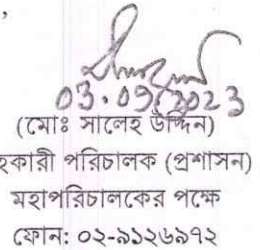 ,
03.09.2023
(মোঃ সালেহ উদ্দিন)
হকারী পরিচালক (প্রশাসন)
মহাপরিচালকের পক্ষে
ফোন: ০২-৯১২৬৯৭২